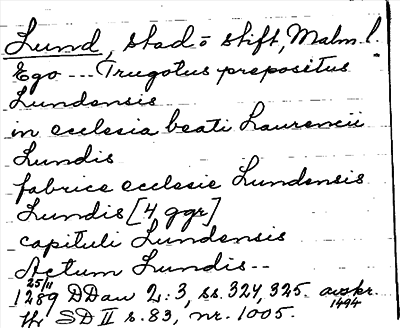 Lund, stad o stift, Malm. l.
Ego --- Trugotus prepositus
Lundensis
in ecclesia beati Laurencii
Lundis
fabrice ecclesie Lundensis
Lundis [4 ggr]
capituli Lundensis
Actum Lundis --
25/11
1289 DDan 2:3, ss. 324, 325. avskr.
1494
SD II s. 83, nr. 1005.